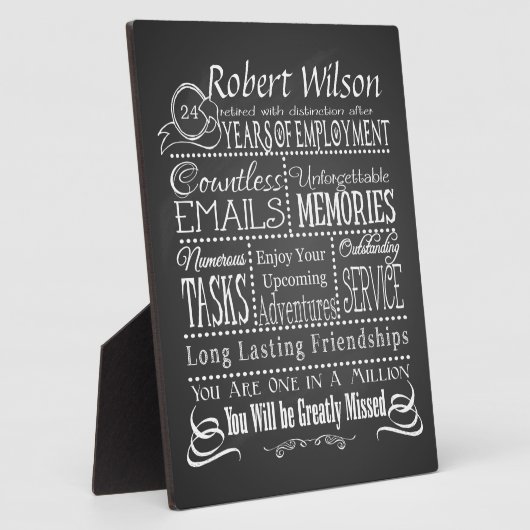 Robert Wilson
24
retired with distinction after
YEARS OF EMPLOYMENT
Countless
EMAILS
Unforgettable
MEMORIES
Numerous
TASKS
Enjoy Your
Upcoming
Adventures
Outstanding
SERVICE
Long Lasting Friendships
YOU ARE ONE IN A MILLION
You Will be Greatly Missed